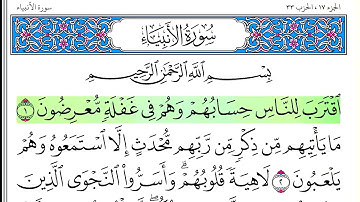 الجزء ١٧ ، الحزب ٣٣
سورة الأنبياء
سُورَةُ الأَنبِيَاءِ
بِسْمِ اللَّهِ الرَّحْمَٰنِ الرَّحِيمِ
ٱقْتَرَبَ لِلنَّاسِ حِسَابُهُمْ وَهُمْ فِى غَفْلَةٍ مُّعْرِضُونَ ١
مَا يَأْتِيهِم مِّن ذِكْرٍ مِّن رَّبِّهِم مُّحْدَثٍ إِلَّا ٱسْتَمَعُوهُ وَهُمْ
يَلْعَبُونَ ٢ لَاهِيَةً قُلُوبُهُمْ وَأَسَرُّوا۟ ٱلنَّجْوَى ٱلَّذِينَ